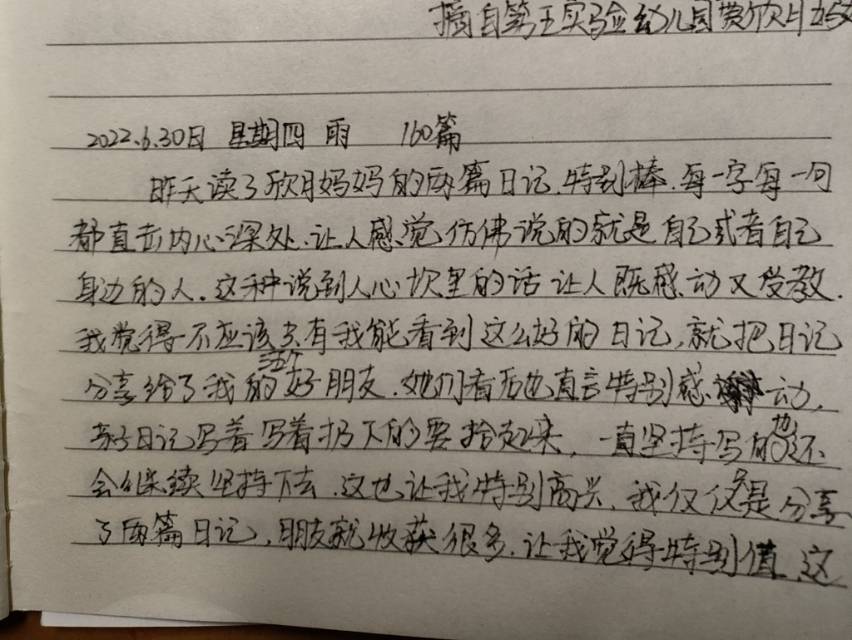 摘自第五实验幼儿园黄欣月妈妈
2022.6.30日 星期四 雨 160篇
昨天读了欣月妈妈的两篇日记,特别棒.每一字每一句
都直击内心深处.让人感觉仿佛说的就是自己或者自己
身边的人.这种说到人心坎里的话让人既感动又受教.
我觉得不应该只有我能看到这么好的日记,就把日记
分享给了我的好朋友.她们看后也直言特别感动,
日记写着写着扔下的要拾起来,一直坚持写的也还
会继续坚持下去.这也让我特别高兴,我仅仅是分享
了两篇日记,朋友就收获很多.让我觉得特别值.这